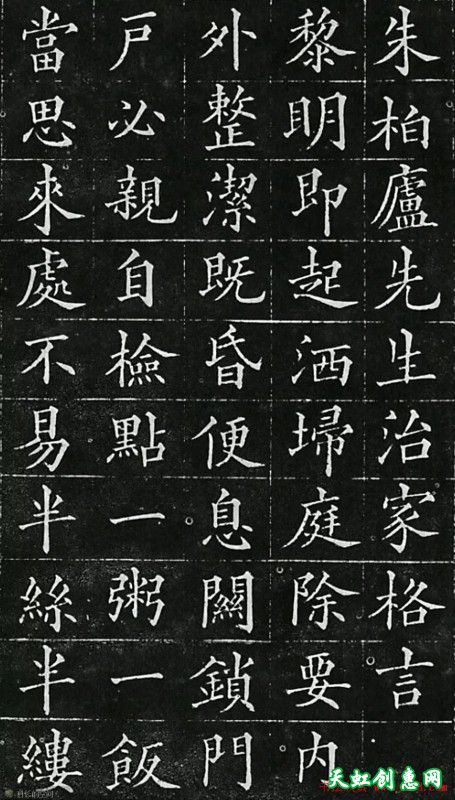 朱柏廬先生治家格言
黎明即起洒埽庭除要内
外整潔既昏便息關鎖門
戸必親自檢點一粥一飯
當思來處不易半絲半縷
天虹创意网